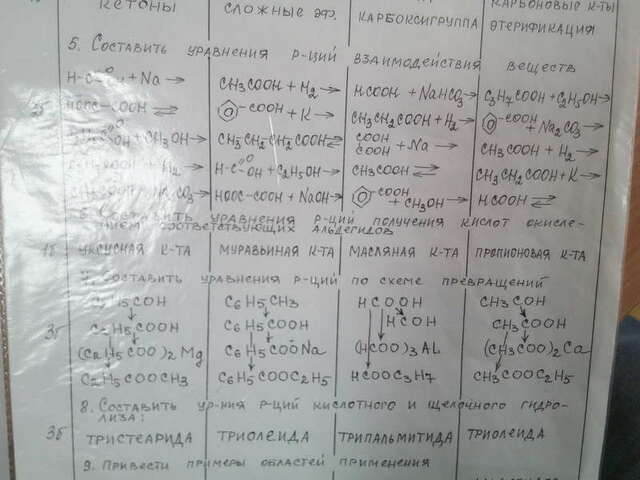 КЕТОНЫ СЛОЖНЫЕ ЭФ. КАРБОКСИГРУППА КАРБОНОВЫЕ К-ТЫ ЭТЕРИФИКАЦИЯ
5. СОСТАВИТЬ УРАВНЕНИЯ Р-ЦИЙ ВЗАИМОДЕЙСТВИЯ ВЕЩЕСТВ
+ Na → CH3COOH + H2 → HCOOH + NaHCO3 → C3H7COOH + C2H5OH →
HOOC-COOH ⇌ -COOH + K → CH3CH2COOH + H2 → -COOH + Na2CO3 →
+ CH3OH → CH3CH2CH2COOH ⇌ COOH COOH + Na → CH3COOH + H2 →
+ H2 → H-C=O OH + C2H5OH → CH3COOH ⇌ CH3CH2COOH + K →
HOOC-COOH + NaOH → -COOH + CH3OH → HCOOH ⇌
6. СОСТАВИТЬ УРАВНЕНИЯ Р-ЦИЙ ПОЛУЧЕНИЯ КИСЛОТ ОКИСЛЕ-
НИЕМ СООТВЕТСТВУЮЩИХ АЛЬДЕГИДОВ
1б УКСУСНАЯ К-ТА МУРАВЬИНАЯ К-ТА МАСЛЯНАЯ К-ТА ПРОПИОНОВАЯ К-ТА
7. СОСТАВИТЬ УРАВНЕНИЯ Р-ЦИЙ ПО СХЕМЕ ПРЕВРАЩЕНИЙ
C2H5COH C6H5CH3 HCOOH CH3COH
3б C2H5COOH C6H5COOH HCOH CH3COOH
(C2H5COO)2Mg C6H5COONa (HCOO)3AL (CH3COO)2Ca
C2H5COOCH3 C6H5COOC2H5 HCOOC3H7 CH3COOC2H5
8. СОСТАВИТЬ УР-НИЯ Р-ЦИЙ КИСЛОТНОГО И ЩЕЛОЧНОГО ГИДРО-
ЛИЗА:
3б ТРИСТЕАРИДА ТРИОЛЕИДА ТРИПАЛЬМИТИДА ТРИОЛЕИДА
9. ПРИВЕСТИ ПРИМЕРЫ ОБЛАСТЕЙ ПРИМЕНЕНИЯ